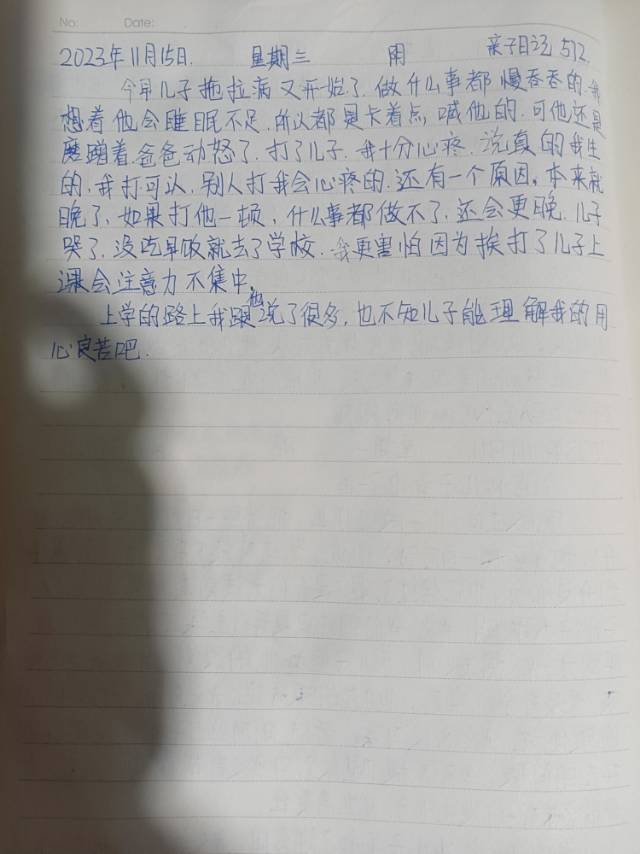 No: Date:
2023年11月15日. 星期三 阴 亲子日记 512.
今早儿子拖拉病又开始了.做什么事都慢吞吞的.我
想着他会睡眠不足.所以都是卡着点喊他的.可他还是
磨蹭着.爸爸动怒了.打了儿子.我十分心疼.说真的我生
的.我打可以.别人打我会心疼的.还有一个原因。本来就
晚了.如果打他一顿,什么事都做不了.还会更晚.儿子
哭了.没吃早饭就去了学校.我更害怕因为挨打了儿子上
课会注意力不集中。
上学的路上我跟他说了很多,也不知儿子能理解我的用
心良苦吧.